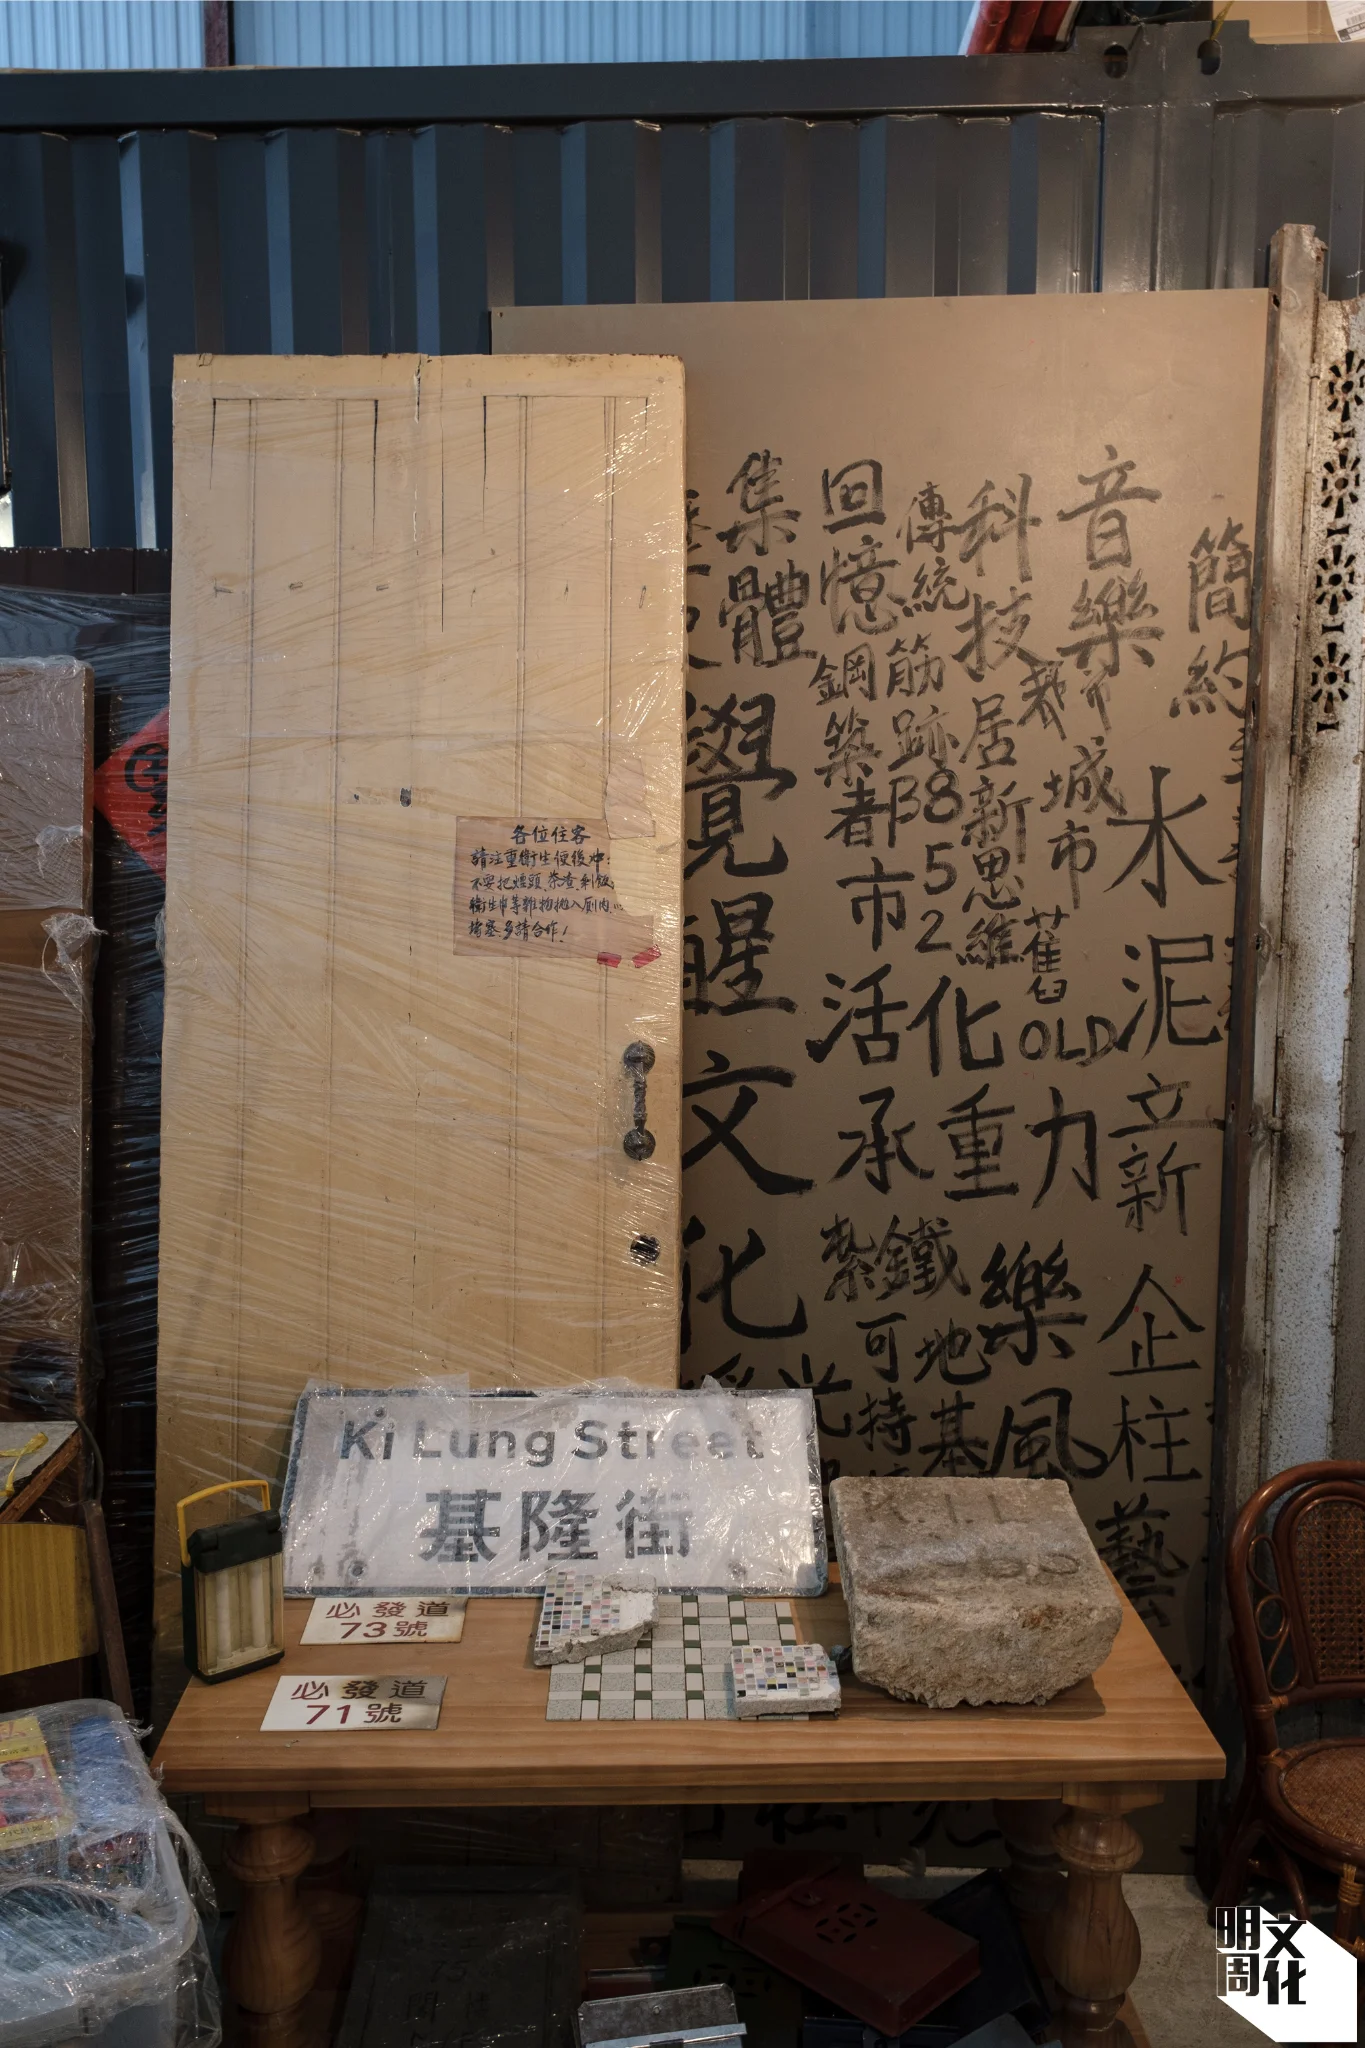 集體
覺醒文化
回憶
鋼筋
築跡
都市
活化
承重力
傳統
8
5
2
科技
居
新思維
音樂
城市
舊
OLD
簡約
水泥
立新
企柱
藝
紮鐵
樂風
可持
地基
各位住客
請注重衛生便後冲
不要把煙頭、茶渣、剩飯
衛生巾等雜物拋入厠內
堵塞、多請合作!
Ki Lung Street
基隆街
必發道
73號
必發道
71號
K.I.L
明周
文化